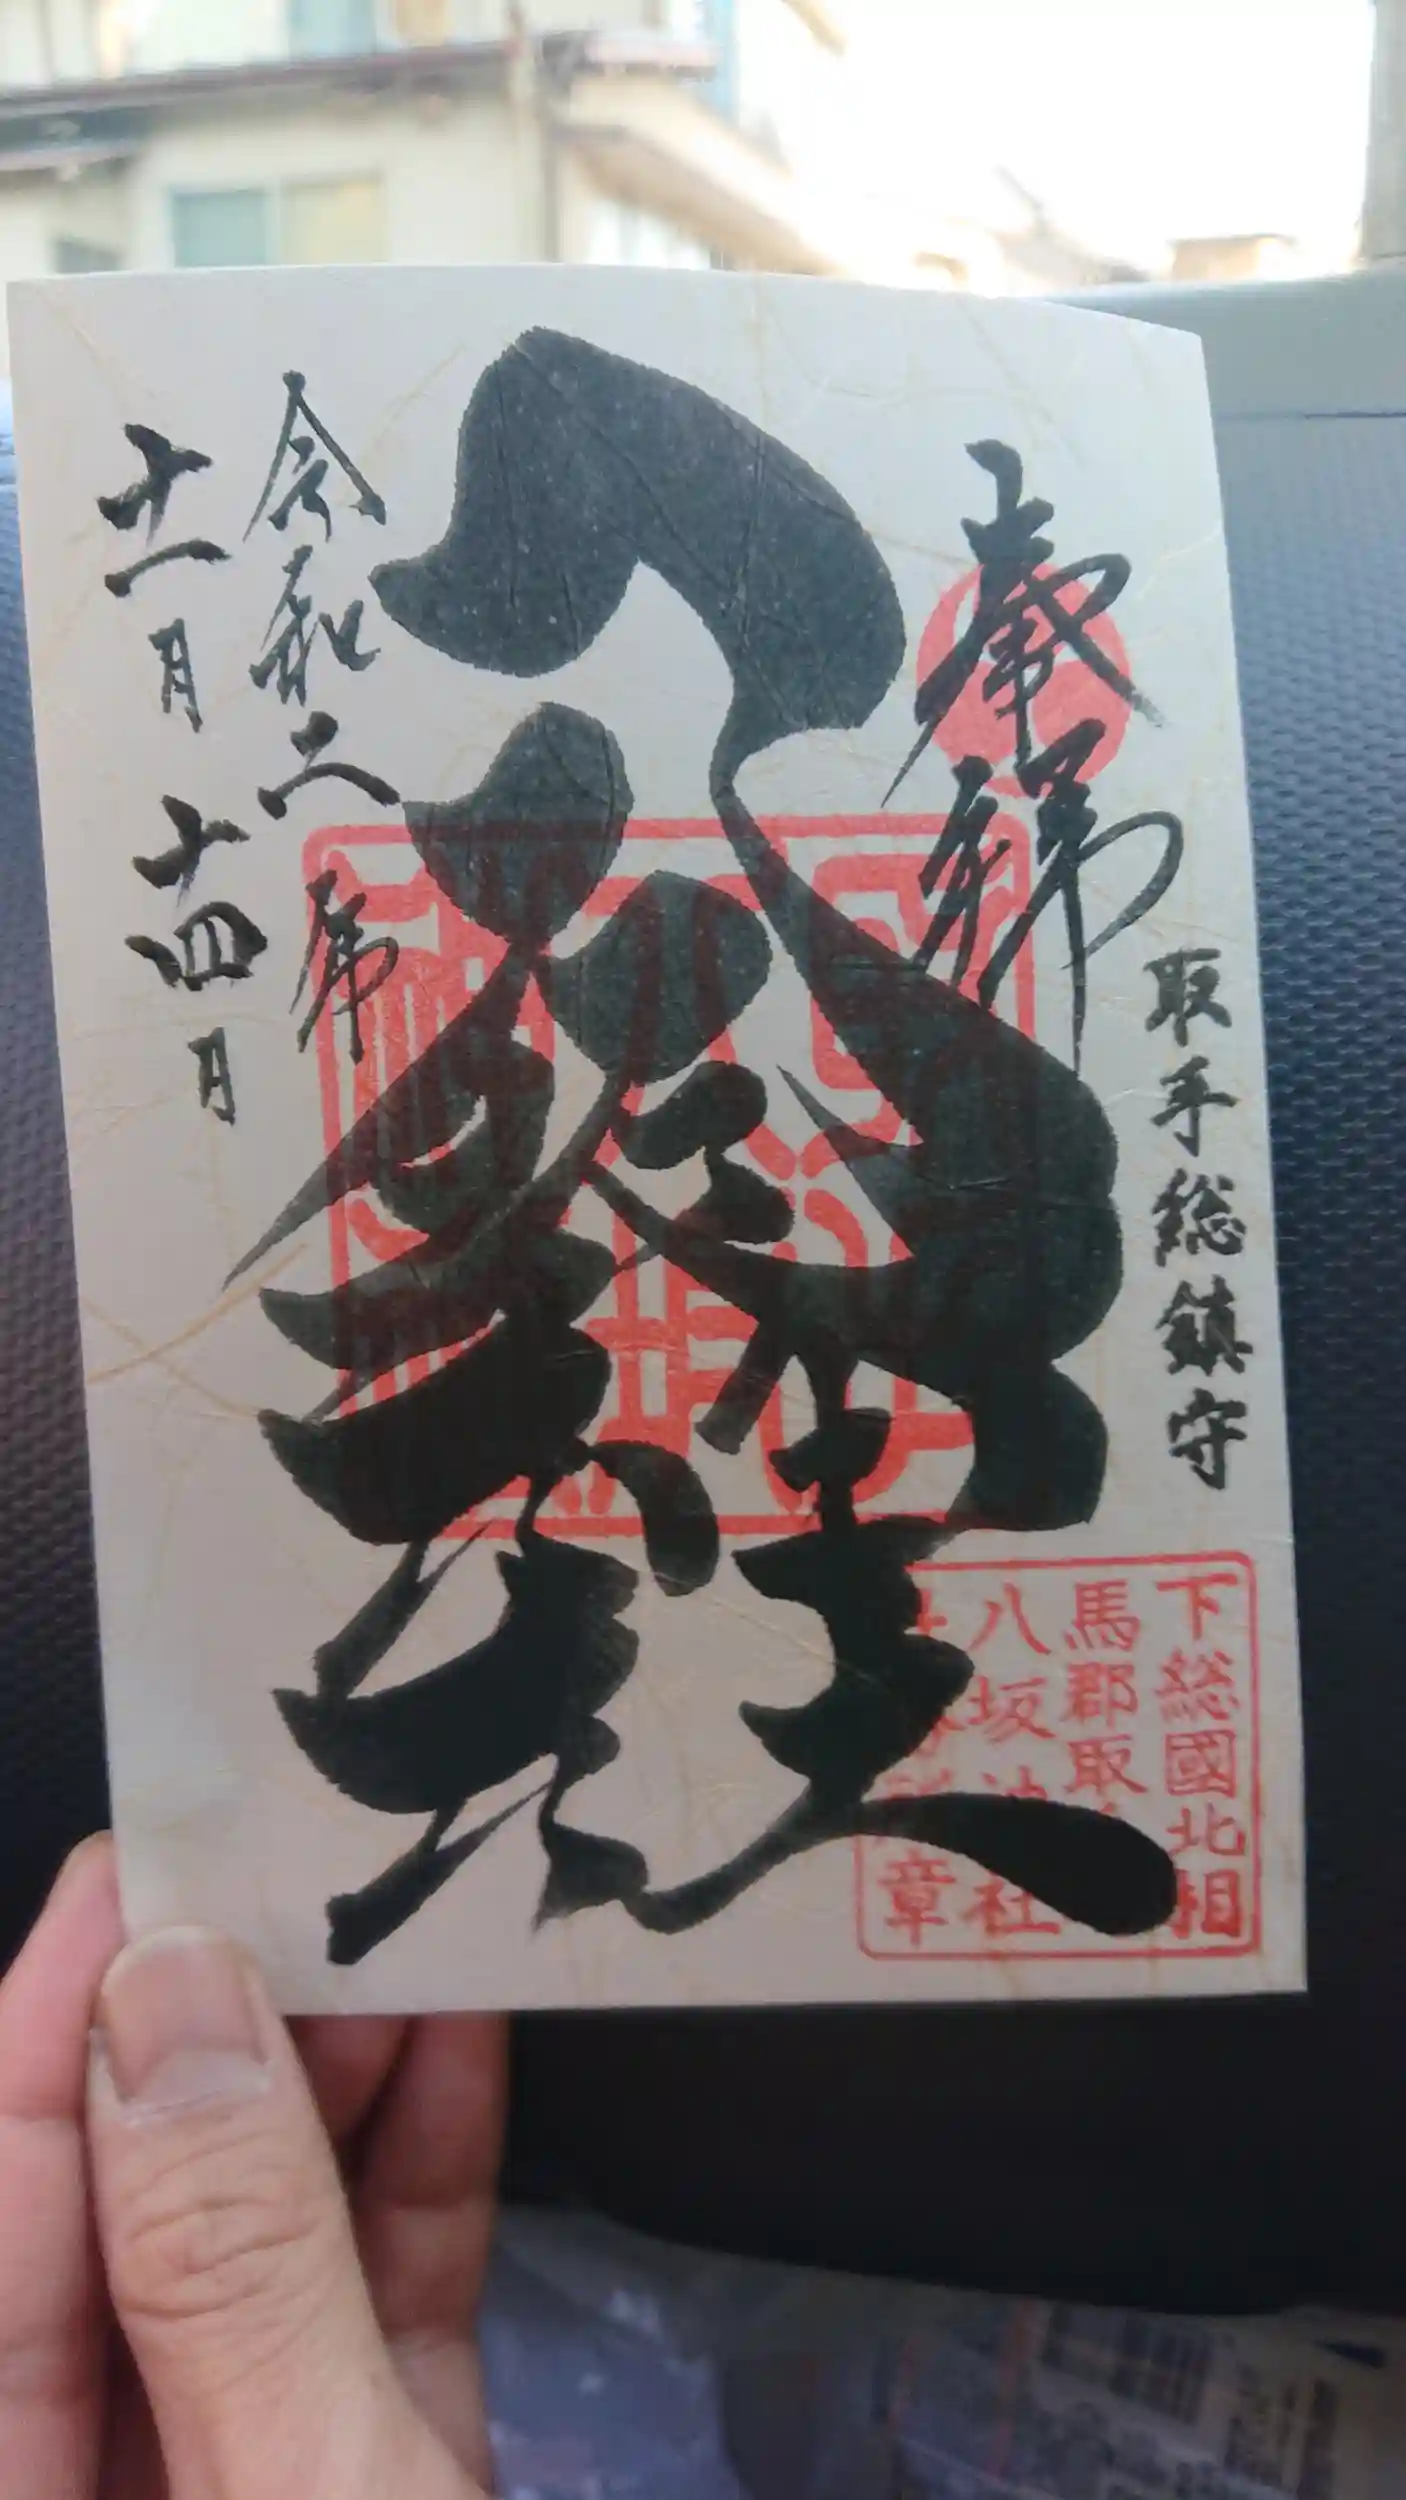 奉拝
取手総鎮守
八坂神社
令和二年
十一月十四日
下総國北相
馬郡取
八坂神社
章